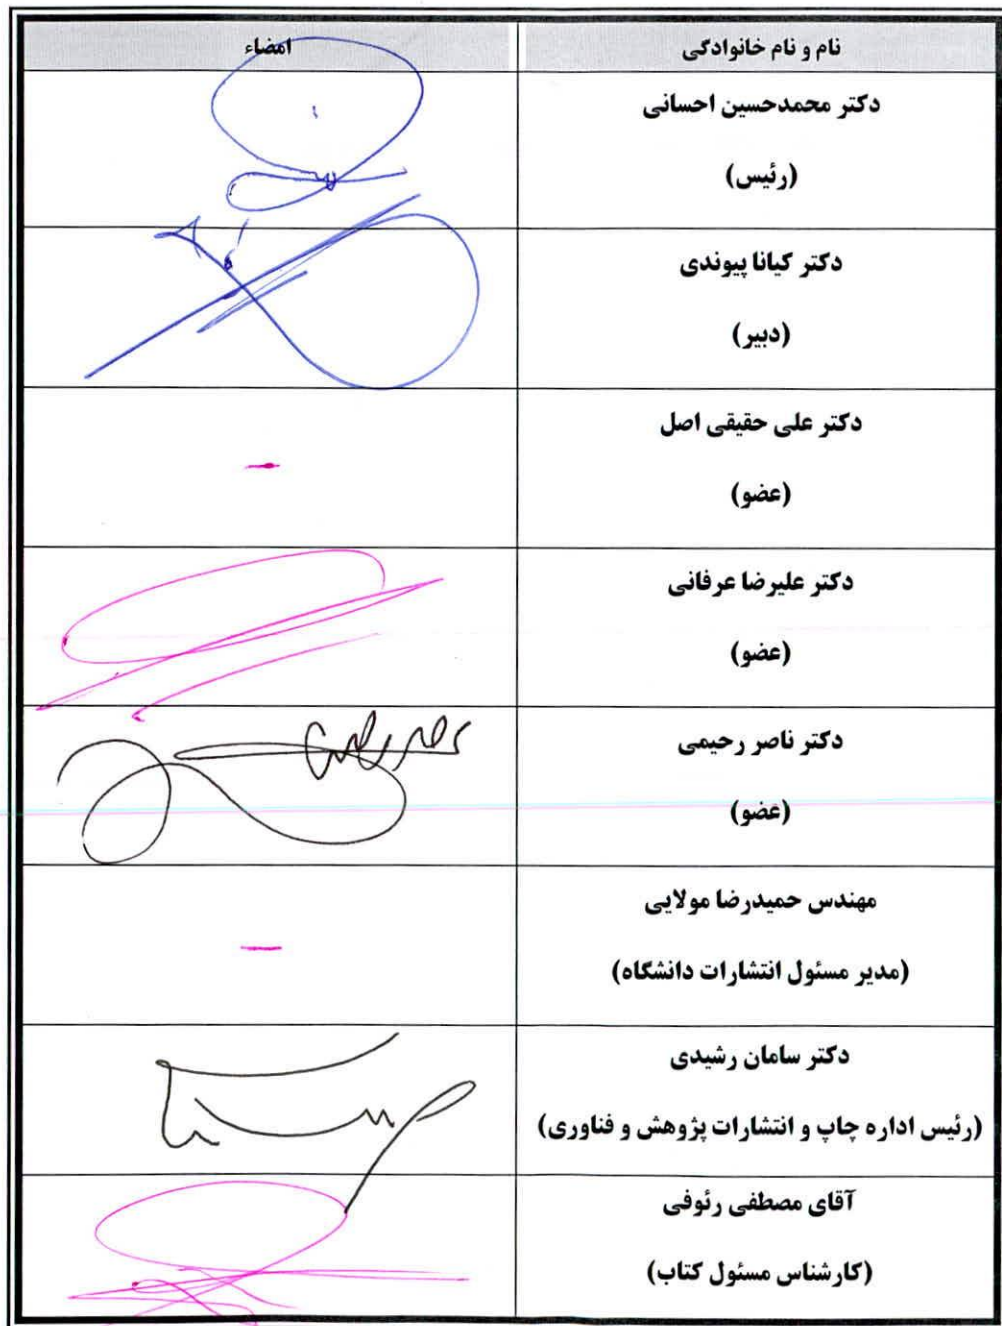 نام و نام خانوادگی امضاء
دکتر محمدحسین احسانی
(رئیس)
دکتر کیانا پیوندی
(دبیر)
دکتر علی حقیقی اصل
(عضو)
-
دکتر علیرضا عرفانی
(عضو)
دکتر ناصر رحیمی
(عضو)
مهندس حمیدرضا مولایی
(مدیر مسئول انتشارات دانشگاه)
-
دکتر سامان رشیدی
(رئیس اداره چاپ و انتشارات پژوهش و فناوری)
آقای مصطفی رئوفی
(کارشناس مسئول کتاب)